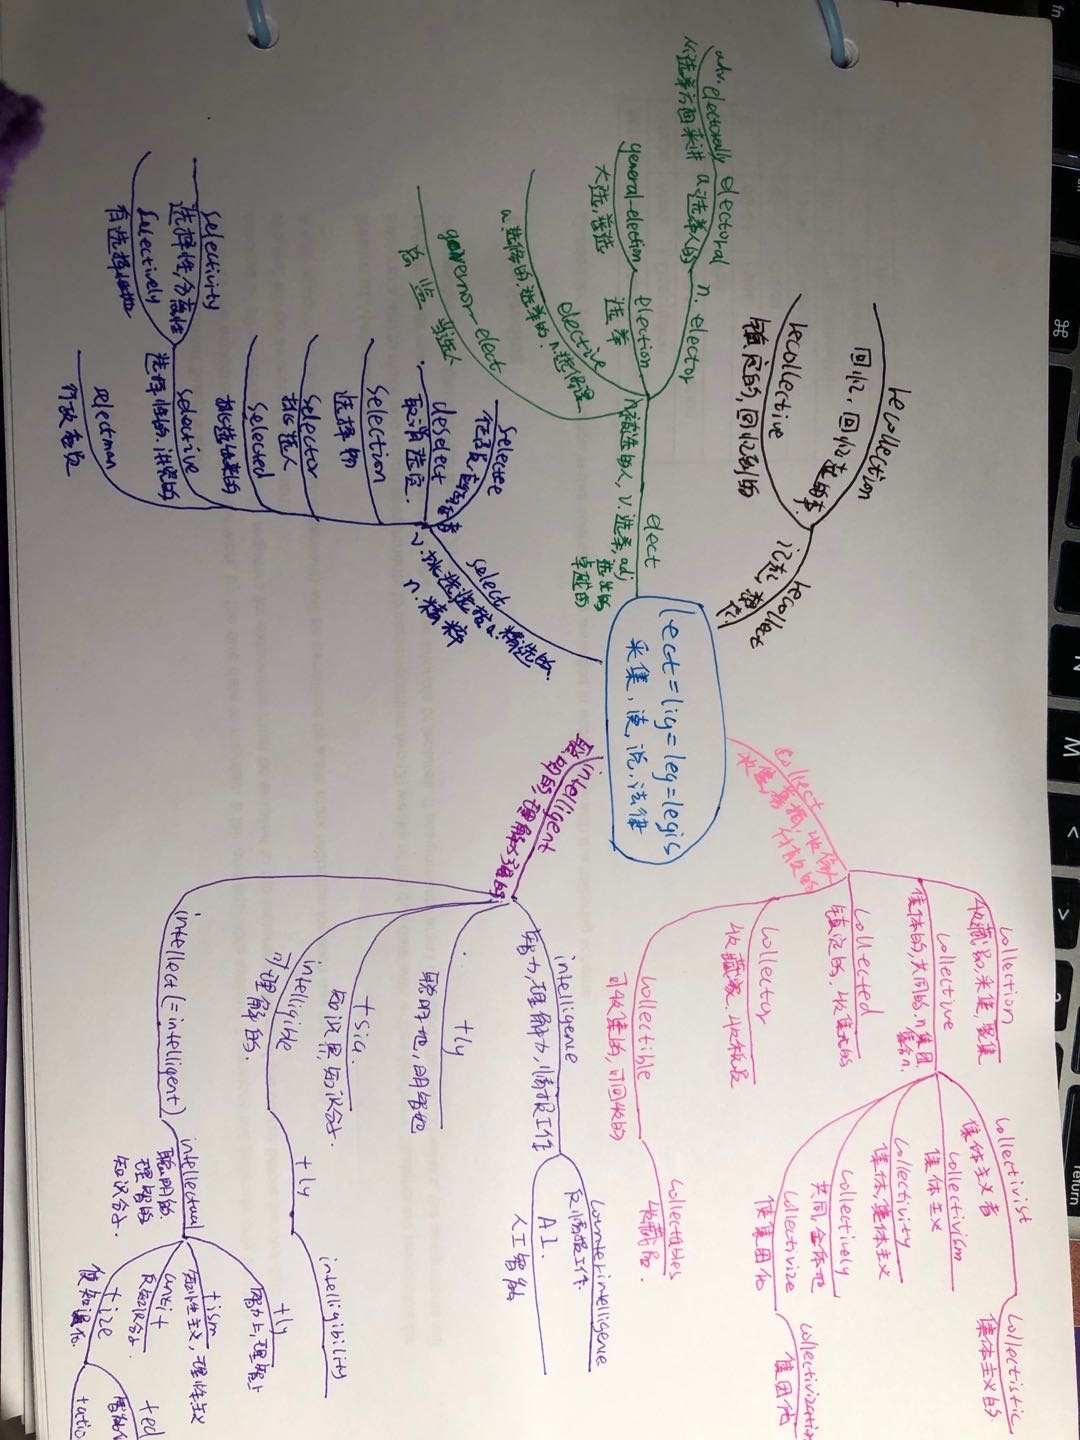 lect=lig=leg=legis
采集,读,说,法律
recollect
记起,想起
recollection
回忆,回忆起的事
recollective
镇定的,回忆到的
elect
n.被选的人,v.选举,adj.
选出的
卓越的
n. elector
electoral
a.选举人的
adv. electorally
从选举方面来讲
election
选举
general-election
大选,普选
elective
a.选修的,选举的.n.选修课
governor-elect
当选人
select
v.挑选,选拔 a.精选的.
n.精粹
selectee
deselect
取消选定.
selection
选择的
selector
挑选人
selected
挑选出来的
selective
选择性的,讲究的
selectivity
选择性,分离性
selectively
有选择性地
selectman
行政委员
collect
收集,募捐,收集
付款的
collection
收藏品,采集,聚集
collective
集体的,共同的,n.集团
集合n.
collectivist
集体主义者
collectistic
集体主义的.
collectivism
集体主义
collectivity
集体,集体主义
collectively
共同,全体地
collectivize
使集团化
collectivization
集团化
collected
镇定的,收集完的
collector
收藏家.收税员
collectible
可收集的,可回收的
collectables
收藏品.
intelligent
聪明的,理解力强的
intelligence
智力,理解力,情报工作
counterintelligence
反情报工作.
A.I.
人工智能
+ly
聪明地,明智地
+sia.
知识界,知识分子.
intelligible
可理解的.
+ly
intelligibility
intellect(=intelligent)
intellectual
聪明的.
理智的
知识分子.
+ly
智力上,理智上
+ism
知性主义,理性主义
anti+
反知识分子.
+ize
+ed
+atio